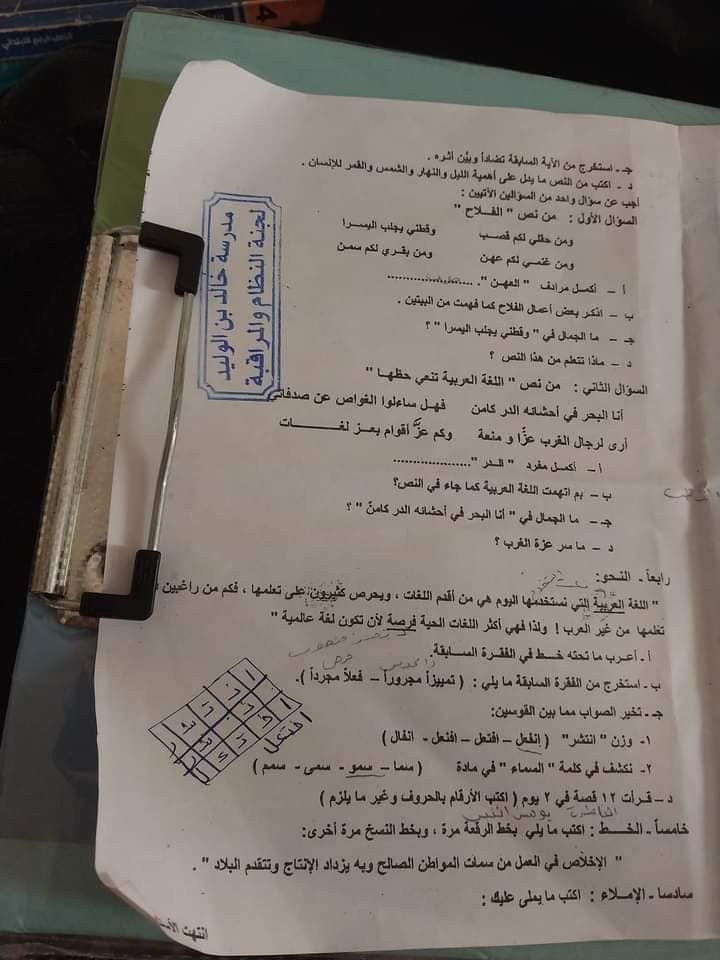 جـ ـ استخرج من الآية السابقة تضاداً وبيِّن أثره .
د ـ اكتب من النص ما يدل على أهمية الليل والنهار والشمس والقمر للإنسان .
أجب عن سؤال واحد من السؤالين الآتيين :
السؤال الأول : من نص " الفـلاح "
ومن حقلي لكم قصب وقطني يجلب اليسرا
ومن غنمي لكم عهن ومن بقري لكم سمن
أ ـ أكمـل مرادف " العهـن " . .....................
ب ـ اذكر بعض أعمال الفلاح كما فهمت من البيتين .
جـ ـ ما الجمال في " وقطني يجلب اليسرا " ؟
د ـ ماذا تتعلم من هذا النص ؟
السؤال الثاني : من نص " اللغة العربية تنعي حظهـا "
أنا البحر في أحشائه الدر كامن فهل ساءلوا الغواص عن صدفاتي
أرى لرجال الغرب عزًّا و منعة وكم عزَّ أقوام بعـز لغـــات
أ ـ أكمل مفرد " الدر " ...................
ب ـ بم اتهمت اللغة العربية كما جاء في النص؟
جـ ـ ما الجمال في " أنا البحر في أحشائه الدر كامنٌ " ؟
د ـ ما سر عزة الغرب ؟
رابعاً ـ النحو:
" اللغة العربية التي نستخدمها اليوم هي من أقدم اللغات ، ويحرص كثيرون على تعلمها ، فكم من راغبين
تعلمها من غير العرب ! ولذا فهي أكثر اللغات الحية فرصة لأن تكون لغة عالمية "
أ ـ أعرب ما تحته خـط في الفقـرة السـابقة.
ب ـ استخرج من الفقرة السابقة ما يلي : ( تمييزاً مجروراً – فعلاً مجرداً ).
جـ ـ تخير الصواب مما بين القوسين:
١- وزن " انتشر" ( إنفعل – افتعل - افنعل - انفال )
٢- نكشف في كلمة " السماء " في مادة ( سما – سمو - سمى - سمم )
د – قرأت ١٢ قصة في ٢ يوم ( اكتب الأرقام بالحروف وغير ما يلزم )
خامساً ـ الخـط : اكتب ما يلي بخط الرقعة مرة ، وبخط النسخ مرة أخرى:
" الإخلاص في العمل من سمات المواطن الصالح وبه يزداد الإنتاج وتتقدم البلاد " .
سادسا ـ الإمـلاء : اكتب ما يملى عليك :
مدرسة خالد بن الوليد
لجنة النظام والمراقبة
افتعل